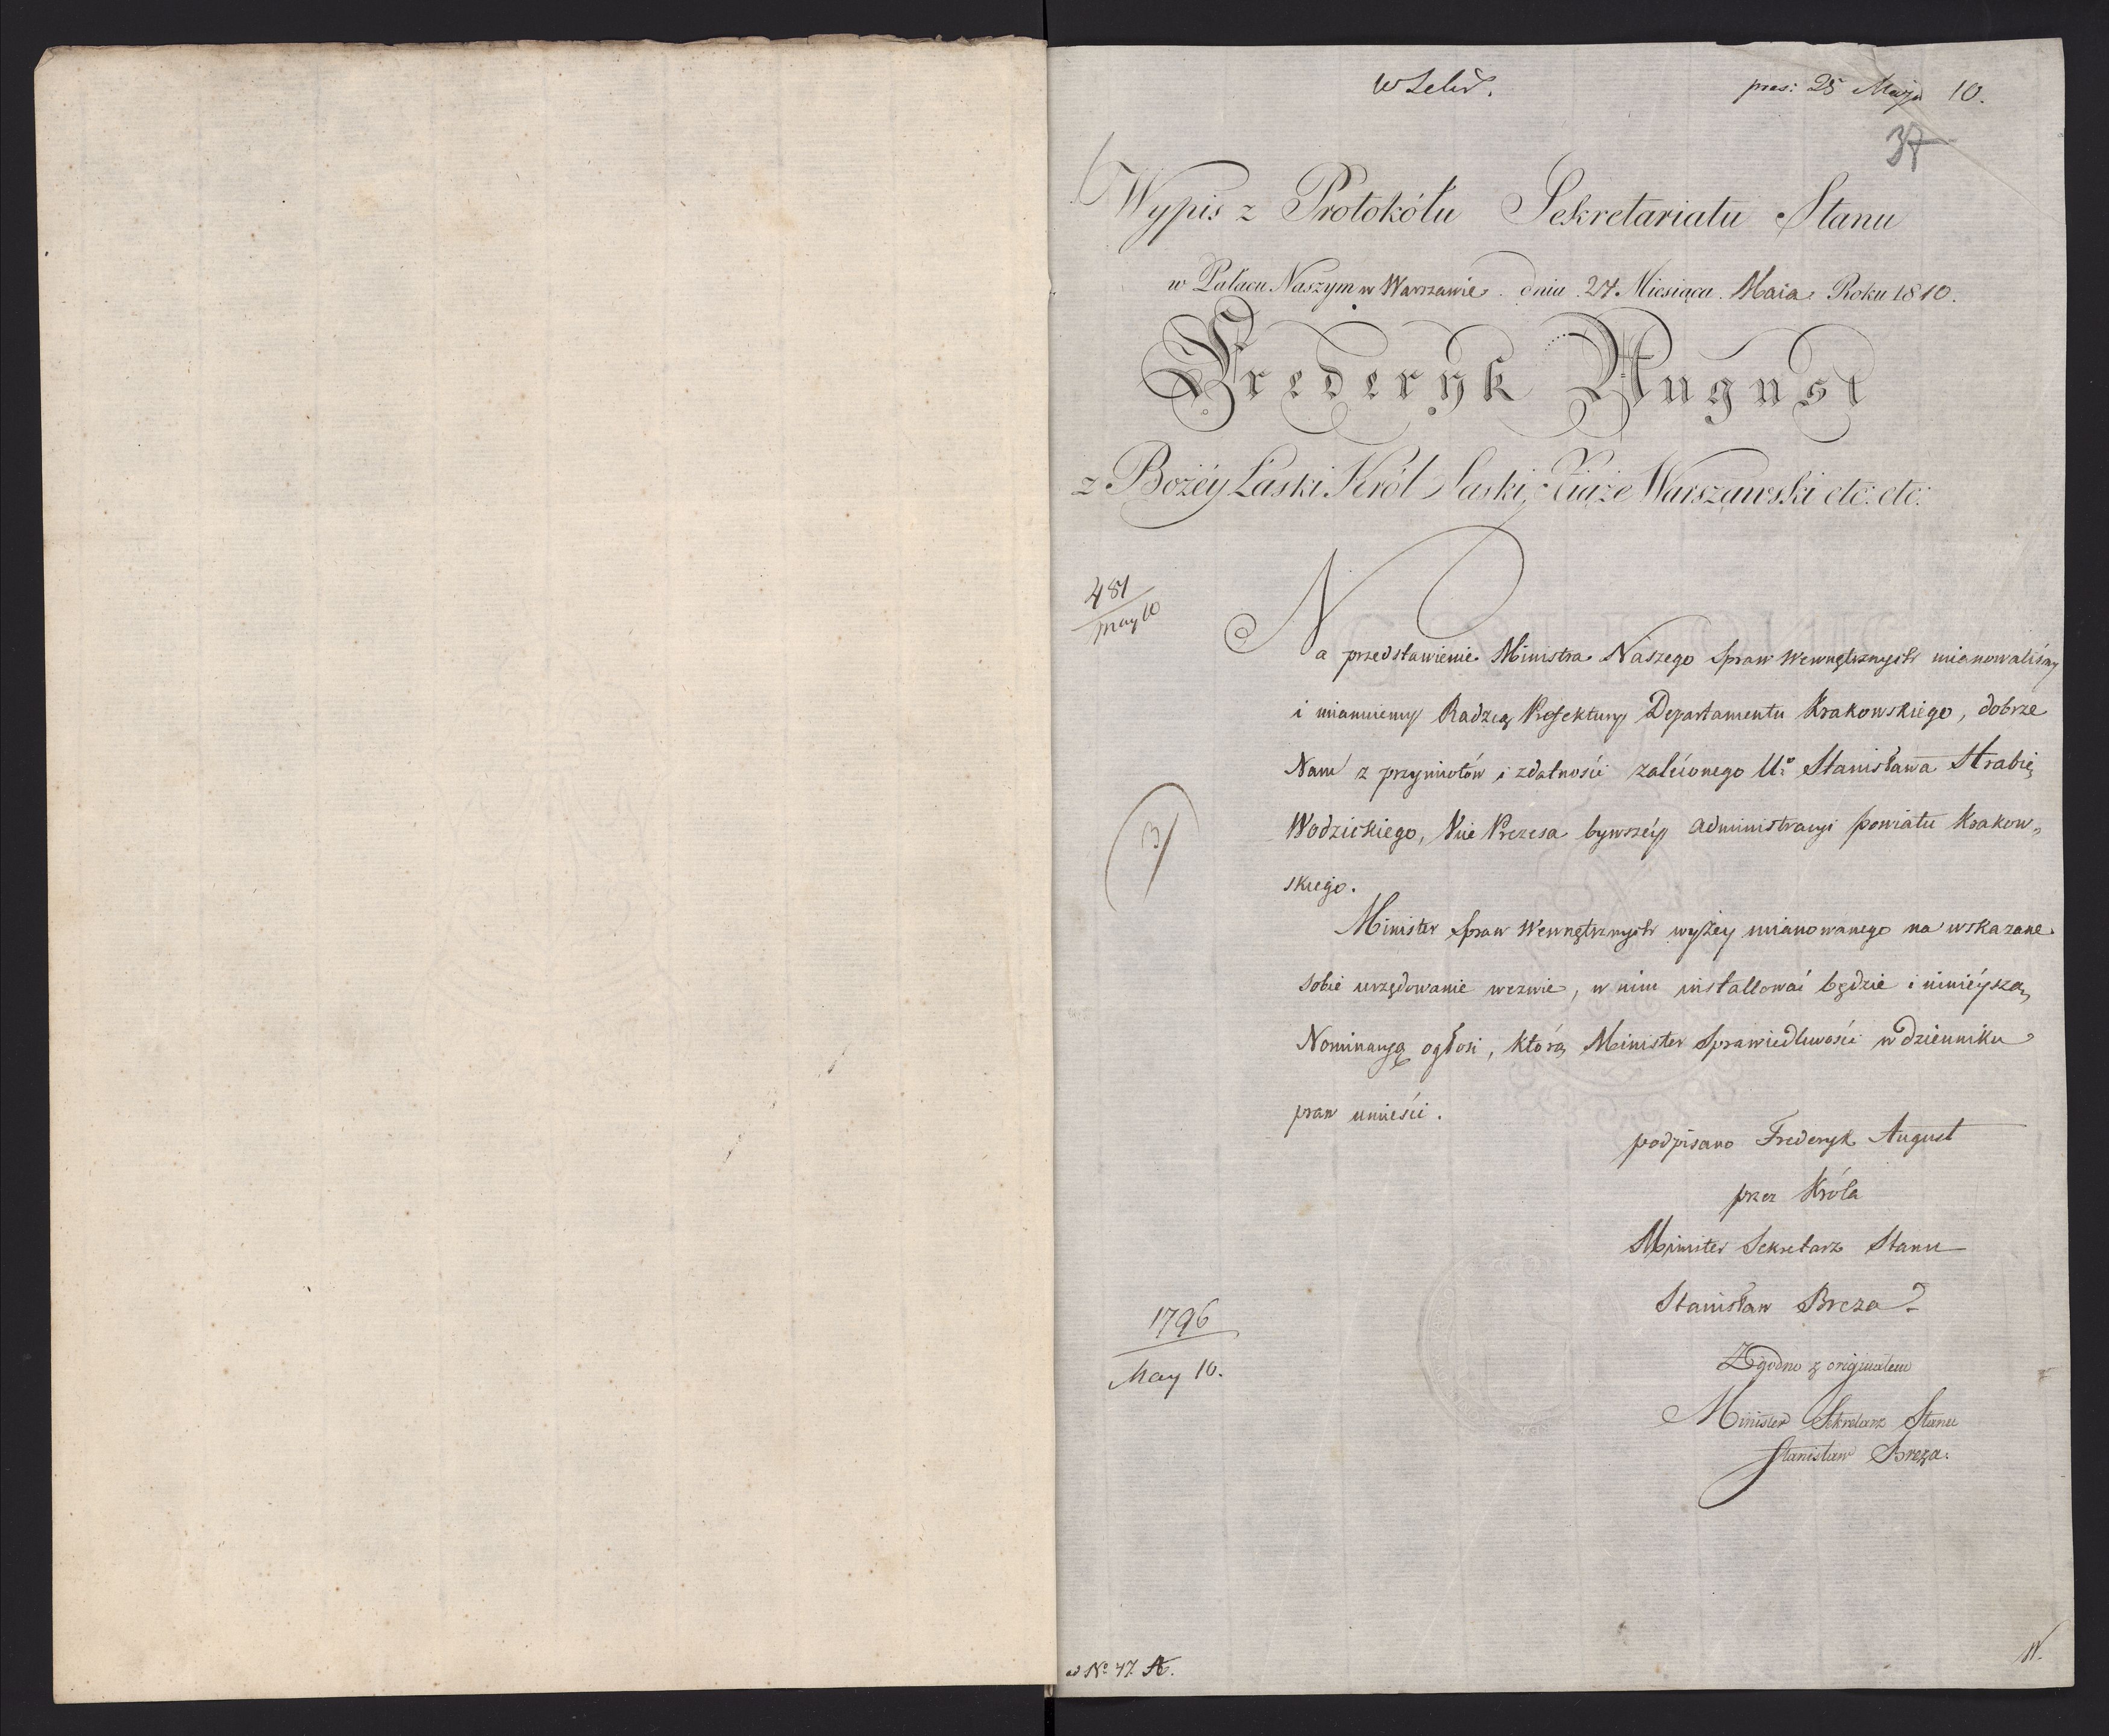 pres: 25 Maja 10.
37
Wypis z Protokółu Sekretariatu Stanu
w Pałacu Naszym w Warszawie dnia 24 Miesiąca Maia Roku 1810.
Frederyk August
z Bożéy Łaski Król Saski, Xiąże Warszawski etc: etc:
481
may 10
Na przedstawienie Ministra Naszego Spraw Wewnętrznych mianowaliśmy
i mianuiemy Radzcą Prefektury Departamentu Krakowskiego, dobrze
Nam z przymiotów i zdatności zaleconego Ur̃o Stanisława Hrabię
Wodzickiego, Vice Prezesa bywszéy Administracyi powiatu Krakow„
skiego.
3
Minister Spraw Wewnętrznych wyżey mianowanego na wskazane
sobie urzędowanie wezwie, w nim installować będzie i ninieyszą
Nominacyą ogłosi, którą Minister Sprawiedliwości w dzienniku
praw umieści.
podpisano Frederyk August
przez Króla
Minister Sekretarz Stanu
Stanisław Breza
1796
May 10.
Zgodno z originałem
Minister Sekretarz Stanu
Stanisław Breza.
N° 47. A.